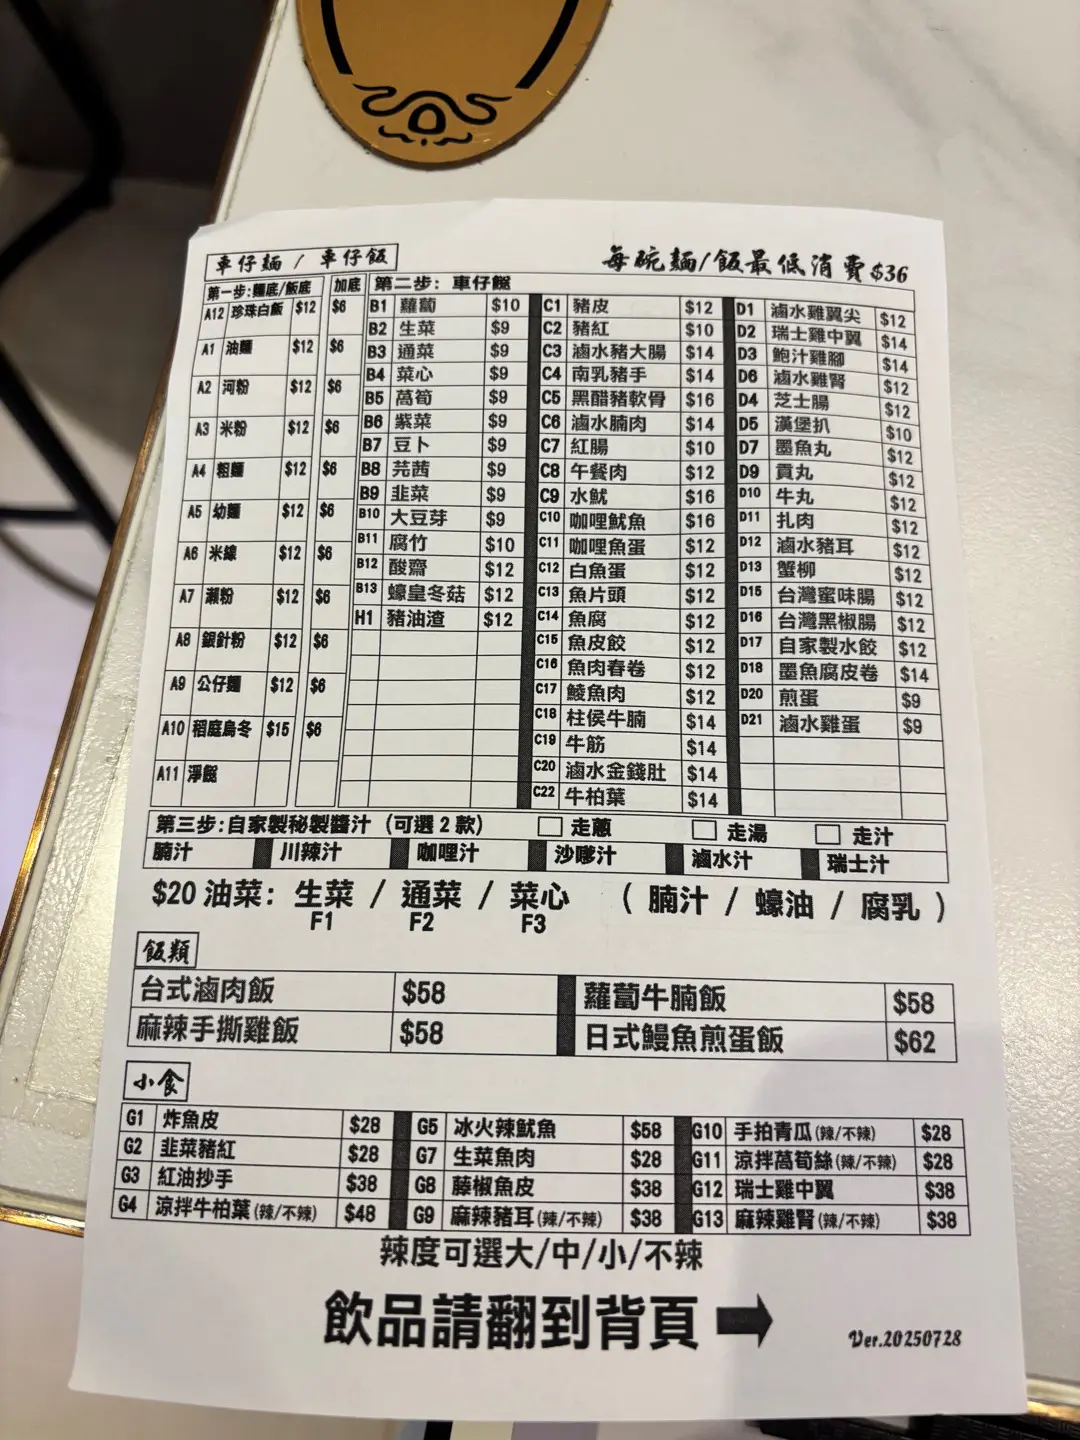 車仔麵 / 車仔飯
每碗麵/飯最低消費$36
第一步:麵底/飯底 加底
A12 珍珠白飯 $12 $6
A1 油麵 $12 $6
A2 河粉 $12 $6
A3 米粉 $12 $6
A4 粗麵 $12 $6
A5 幼麵 $12 $6
A6 米線 $12 $6
A7 瀨粉 $12 $6
A8 銀針粉 $12 $6
A9 公仔麵 $12 $6
A10 稻庭烏冬 $15 $6
A11 淨餸
第二步: 車仔餸
B1 蘿蔔 $10
B2 生菜 $9
B3 通菜 $9
B4 菜心 $9
B5 萵筍 $9
B6 紫菜 $9
B7 豆卜 $9
B8 芫茜 $9
B9 韭菜 $9
B10 大豆芽 $9
B11 腐竹 $10
B12 酸齋 $12
B13 蠔皇冬菇 $12
H1 豬油渣 $12
C1 豬皮 $12
C2 豬紅 $10
C3 滷水豬大腸 $14
C4 南乳豬手 $14
C5 黑醋豬軟骨 $16
C6 滷水腩肉 $14
C7 紅腸 $10
C8 午餐肉 $12
C9 水魷 $16
C10 咖哩魷魚 $16
C11 咖哩魚蛋 $12
C12 白魚蛋 $12
C13 魚片頭 $12
C14 魚腐 $12
C15 魚皮餃 $12
C16 魚肉春卷 $12
C17 鯪魚肉 $12
C18 柱侯牛腩 $14
C19 牛筋 $14
C20 滷水金錢肚 $14
C22 牛柏葉 $14
D1 滷水雞翼尖 $12
D2 瑞士雞中翼 $14
D3 鮑汁雞腳 $14
D6 滷水雞腎 $12
D4 芝士腸 $12
D5 漢堡扒 $10
D7 墨魚丸 $12
D9 貢丸 $12
D10 牛丸 $12
D11 扎肉 $12
D12 滷水豬耳 $12
D13 蟹柳 $12
D15 台灣蜜味腸 $12
D16 台灣黑椒腸 $12
D17 自家製水餃 $12
D18 墨魚腐皮卷 $14
D20 煎蛋 $9
D21 滷水雞蛋 $9
第三步:自家製秘製醬汁 (可選2款) 走蔥 走湯 走汁
腩汁 川辣汁 咖哩汁 沙嗲汁 滷水汁 瑞士汁
$20 油菜: 生菜 / 通菜 / 菜心 ( 腩汁 / 蠔油 / 腐乳 )
F1 F2 F3
飯類
台式滷肉飯 $58 蘿蔔牛腩飯 $58
麻辣手撕雞飯 $58 日式鰻魚煎蛋飯 $62
小食
G1 炸魚皮 $28
G2 韭菜豬紅 $28
G3 紅油抄手 $38
G4 涼拌牛柏葉(辣/不辣) $48
G5 冰火辣魷魚 $58
G7 生菜魚肉 $28
G8 藤椒魚皮 $38
G9 麻辣豬耳(辣/不辣) $38
G10 手拍青瓜(辣/不辣) $28
G11 涼拌萵筍絲(辣/不辣) $28
G12 瑞士雞中翼 $38
G13 麻辣雞腎(辣/不辣) $38
辣度可選大/中/小/不辣
飲品請翻到背頁
Ver.20250728